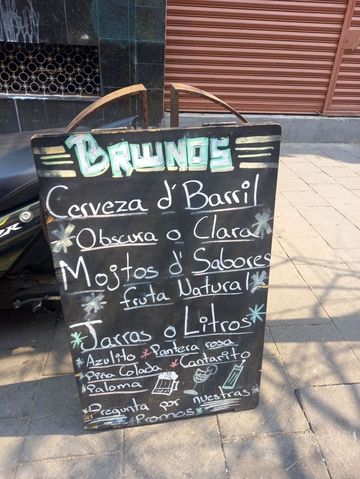 BRUNOS
Cerveza d' Barril
* Obscura o Clara *
Mojtos d' Sabores
* fruta Natural *
* Jarras o Litros *
* Azulito * Pantera rosa
Piña Colada * Cantarito
* Paloma
* Pregunta por nuestras *
Promos